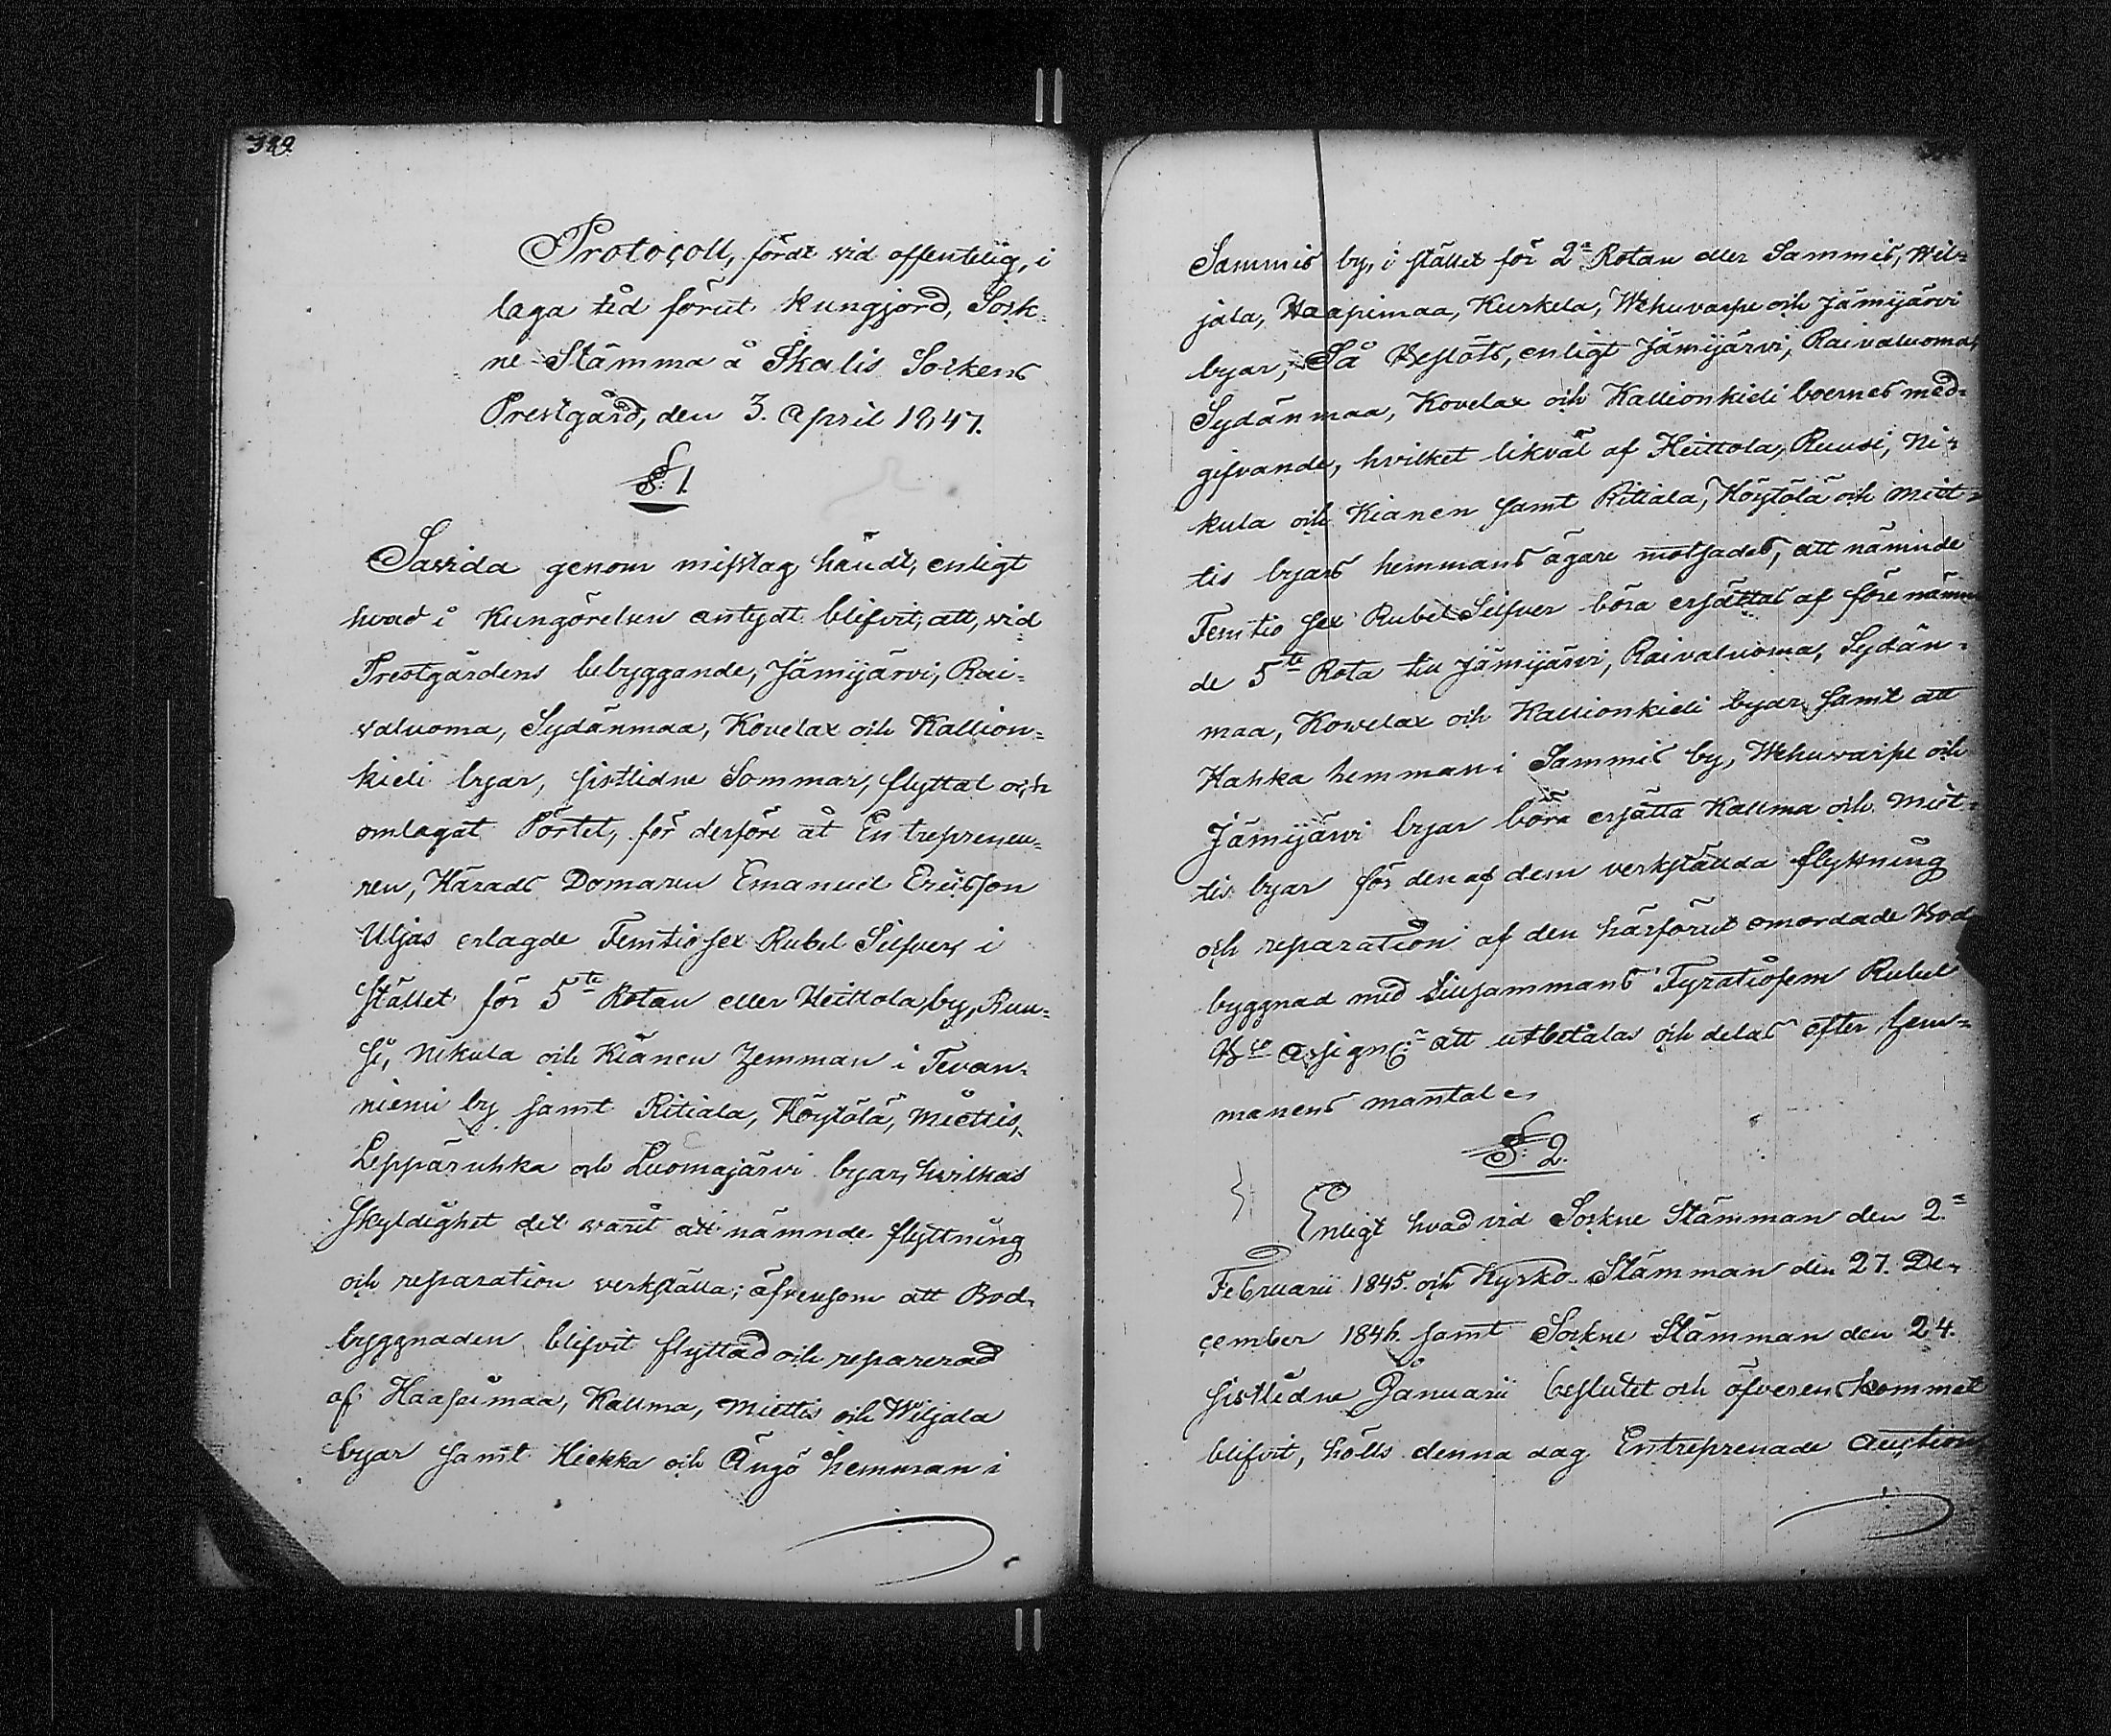 329.
Protocoll, fördt vid offentelig, i
laga tid förut kungjord, Sock-
ne-Stämma å Ikalis Sockens
Prestgård, den 3. April 1847.
§. 1.
Såvida genom misstag händt, enligt
hvad i Kungörelsen antydt blifvit, att, vid
Prestgårdens bebyggande, Jämijärvi, Rai-
valuoma, Sydänmaa, Kovelax och Kallion-
kieli byar, sistlidne Sommar, flyttat och
omlagat Pörtet, för derföre åt Entrepreneu-
ren, Härads Domaren Emanuel Ericsson
Uljas erlagde Femtiosex Rubel Silfver, i
stället för 5te Rotan eller Heittola by, Ruu-
si, Nikula och Kianen Hemman i Tevan-
niemi by samt Ritiala, Höytölä, Miettis,
Leppäruhka och Luomajärvi byar, hvilkas
skyldighet det varit att nämnde flyttning
och reparation verkställa; äfvensom att Bod-
byggnaden blifvit flyttad och reparerad
af Haapimaa, Kallma, Miettis och Wiljala
byar samt Hiekka och Ängö hemman i
Sammis by, i stället för 2a Rotan eller Sammis, Wil-
jala, Haapimaa, Kurkela, Wehuvarpe och Jämijärvi
byar, Så Beslöts, enligt Jämijärvi, Raivaluoma,
Sydänmaa, Kovelax och Kallionkieli boernes med-
gifvande, hvilket likväl af Heittola, Ruusi, Ni-
kula och Kianen samt Ritiala, Höytölä och Miet-
tis byars hemmans ägare motsades, att nämnde
Femtio sex Rubel Silfver böra ersättas af förenämn-
de 5te Rota till Jämijärvi, Raivaluoma, Sydän-
maa, Kowelax och Kallionkieli byar, samt att
Hahka hemman i Sammis by, Wehuvarpe och
Jämijärvi byar böra ersätta Kallma och Miet-
tis byar för den af dem verkställda flyttning
och reparation af den härförut omordade Bod-
byggnad med tillsammans Fyratiofem Rubel
Bco Assign:r att utbetalas och delas efter hem-
manens mantal.
§. 2.
Enligt hvad vid Sockne Stämman den 2.a
Februarii 1845. och Kyrko-Stämman den 27. De-
cember 1846. samt Sockne Stämman den 24.
sistlidne Januarii beslutet och öfverenskommet
blifvit, hölls denna dag Entreprenade Auction